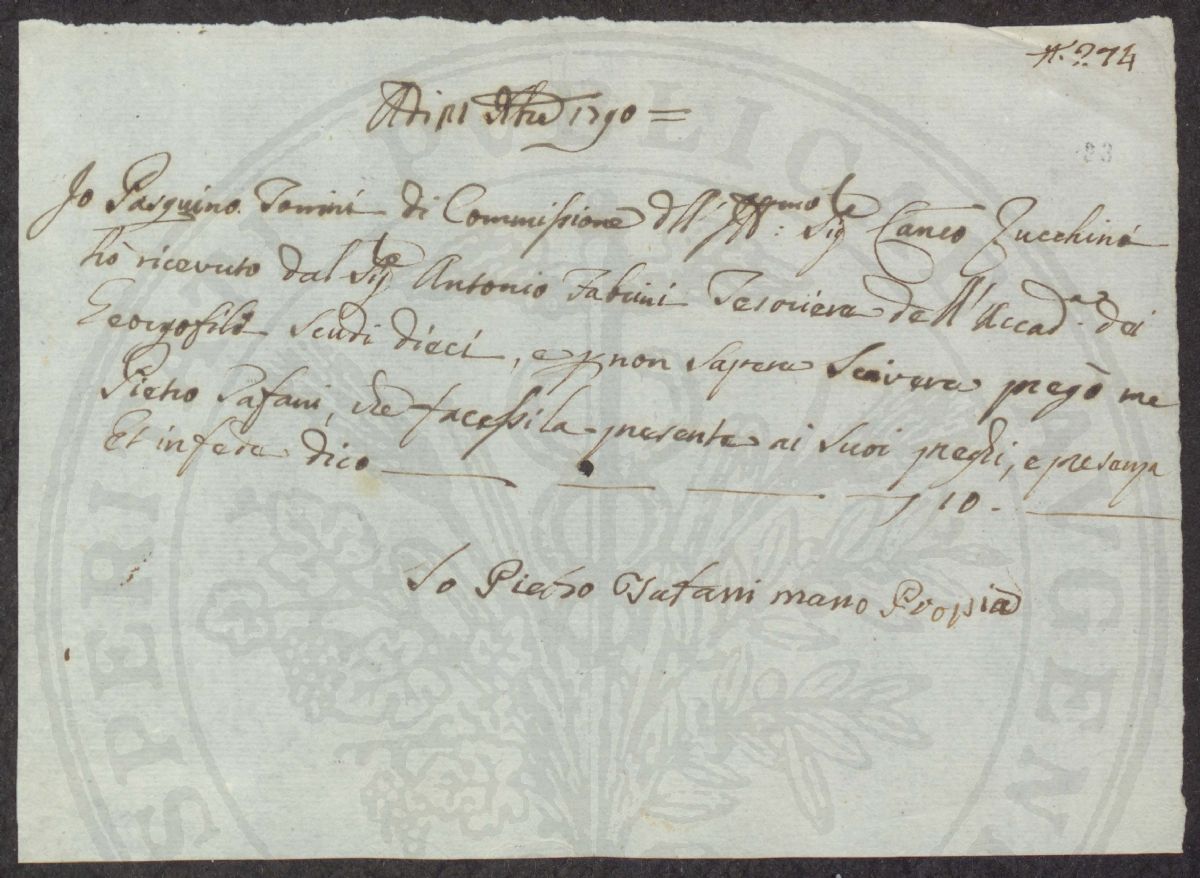 N.° 274
Adi p.i 1790 =
83
Io Pasquino Tonini di Commissione dll' Ill:mo Sig.re Can.co Zucchini
hò ricevuto dal Sig.re Antonio Fabrini Tesoriere dell' Accad.a dei
Georgofili Scudi dieci, e p non sapere Scrivere pregò me
Pietro Tafani, che facessi la presente ai suoi preghi, e presenza
Et in fede dico 10.
Io Pietro Tafani mano Propia
PUBLICAE
PROSPERITATI
AUGENDAE